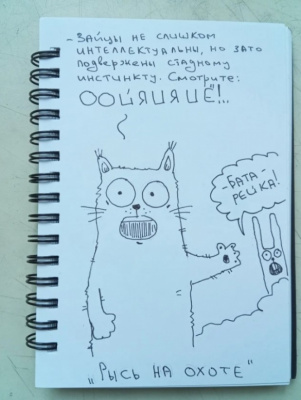 - Зайцы не слишком
интеллектуальны, но зато
подвержены стадному
инстинкту. Смотрите:
ООЙЯЦЯЦЁ!..
-БАТА-
РЕЙКА!
"Рысь на охоте"